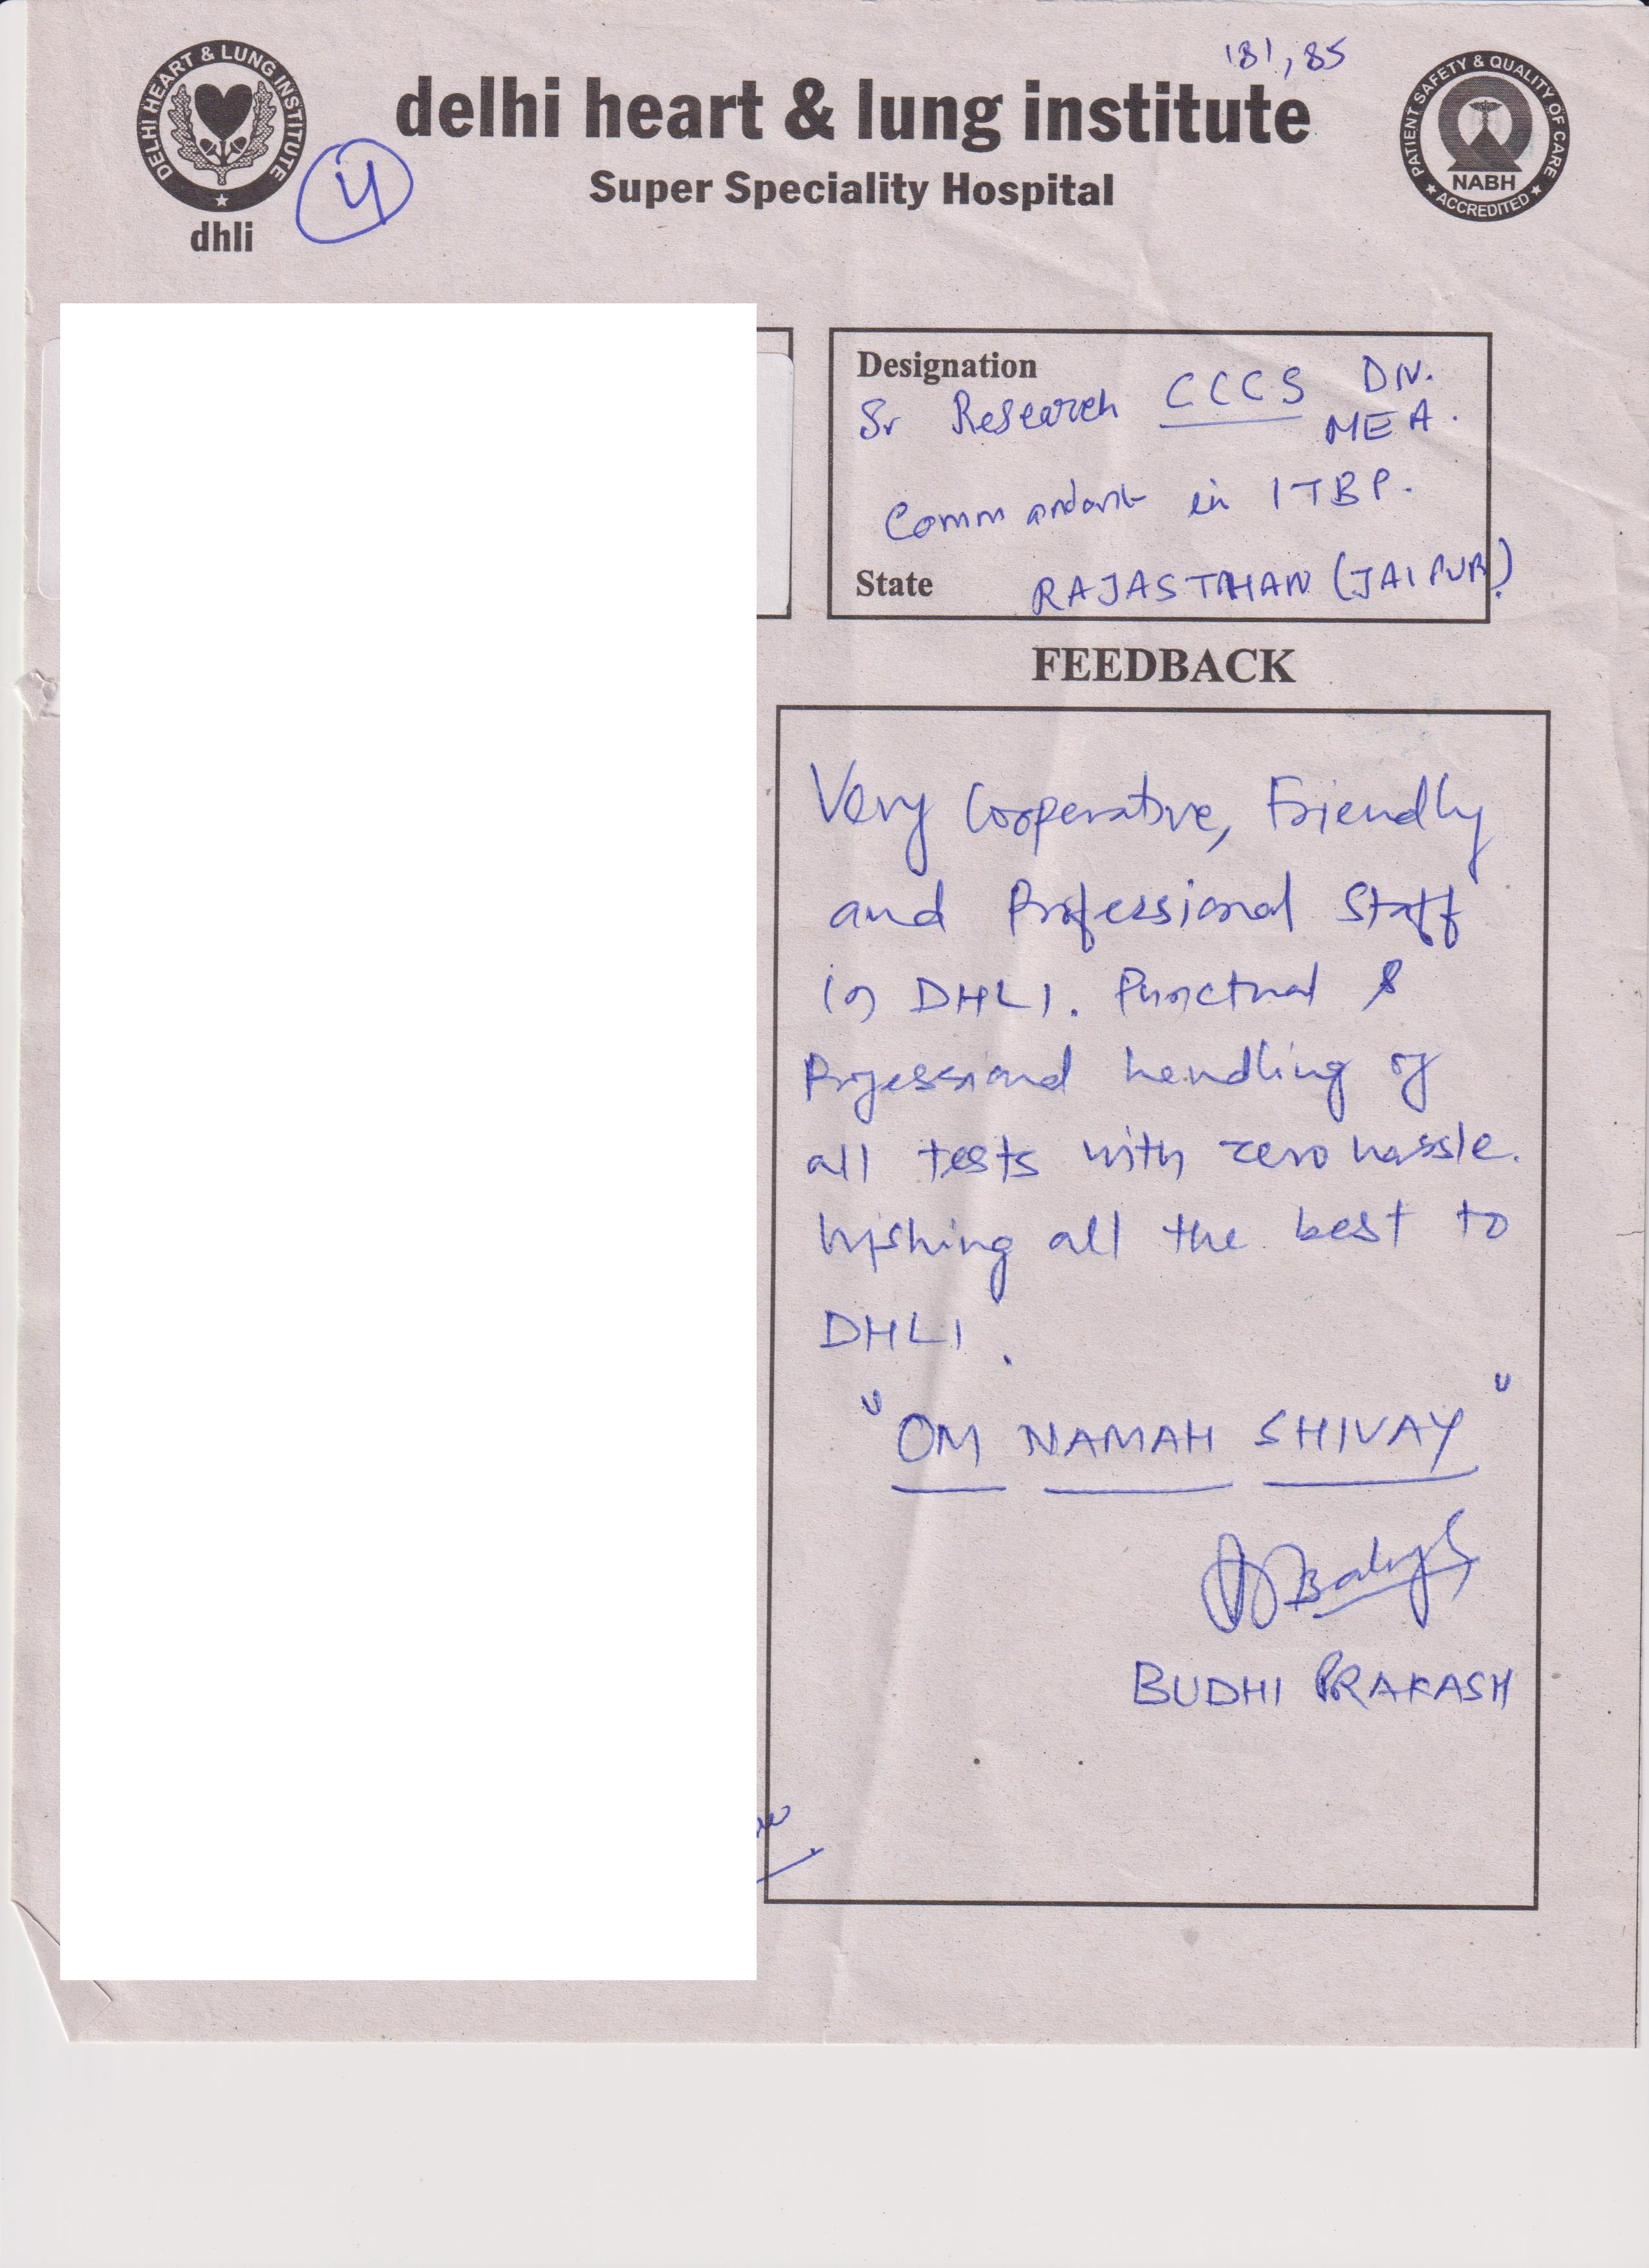 181, 85
DELHI HEART & LUNG INSTITUTE
dhli
4
delhi heart & lung institute
Super Speciality Hospital
PATIENT SAFETY & QUALITY OF CARE
NABH
ACCREDITED
Designation
Sr Research CCCS DIV.
MEA.
Commandant in ITBP.
State RAJASTHAN (JAIPUR)
FEEDBACK
Very Cooperative, Friendly
and Professional Staff
in DHLI. Punctual &
Professional handling of
all tests with zero hassle.
Wishing all the best to
DHLI.
"OM NAMAH SHIVAY"
BUDHI PRAKASH